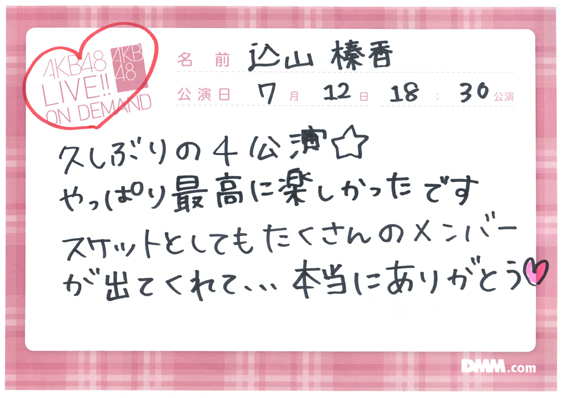 AKB48
LIVE!!
ON DEMAND
AKB
48
名前 込山榛香
公演日 7月12日 18:30公演
久しぶりの4公演☆
やっぱり最高に楽しかったです
スケットとしてもたくさんのメンバー
が出てくれて... 本当にありがとう♡
DMM.com